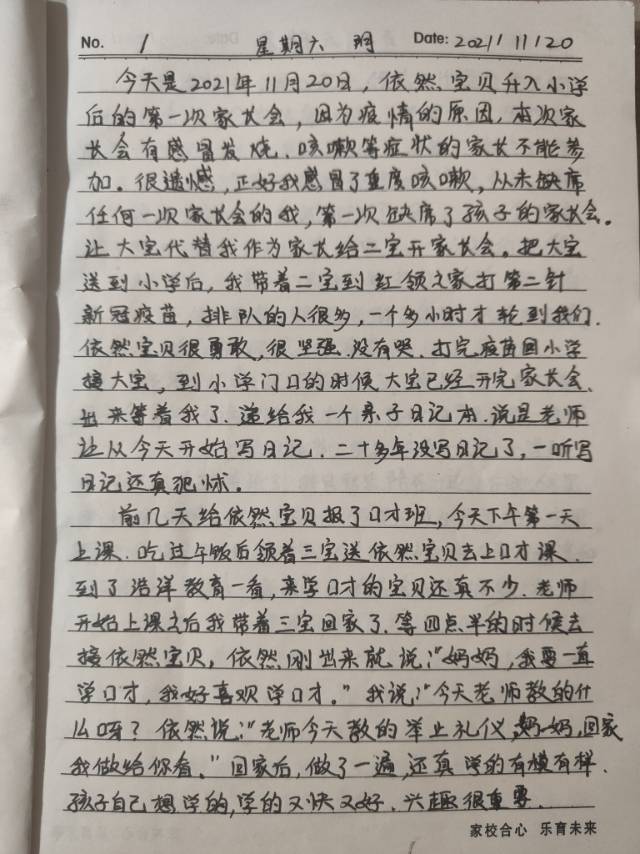 No. 1 星期六 晴 Date: 2021/11/20
今天是2021年11月20日，依然宝贝升入小学
后的第一次家长会，因为疫情的原因，本次家
长会有感冒发烧、咳嗽等症状的家长不能参
加。很遗憾，正好我感冒了重度咳嗽，从未缺席
任何一次家长会的我，第一次缺席了孩子的家长会。
让大宝代替我作为家长给二宝开家长会。把大宝
送到小学后，我带着二宝到红领之家打第二针
新冠疫苗，排队的人很多，一个多小时才轮到我们.
依然宝贝很勇敢，很坚强.没有哭.打完疫苗回小学
接大宝，到小学门口的时候大宝已经开完家长会.
出来等着我了.递给我一个亲子日记本.说是老师
让从今天开始写日记.二十多年没写日记了，一听写
日记还真犯怵。
前几天给依然宝贝报了口才班，今天下午第一天
上课.吃过午饭后领着三宝送依然宝贝去上口才课.
到了浩洋教育一看，来学口才的宝贝还真不少.老师
开始上课之后我带着三宝回家了.等四点半的时候去
接依然宝贝，依然刚出来就说：“妈妈，我要一直
学口才，我好喜欢学口才。”我说：“今天老师教的什
么呀？依然说：“老师今天教的举止礼仪,妈妈,回家
我做给你看。”回家后，做了一遍,还真学的有模有样.
孩子自己想学的,学的又快又好.兴趣很重要.
家校合心 乐育未来